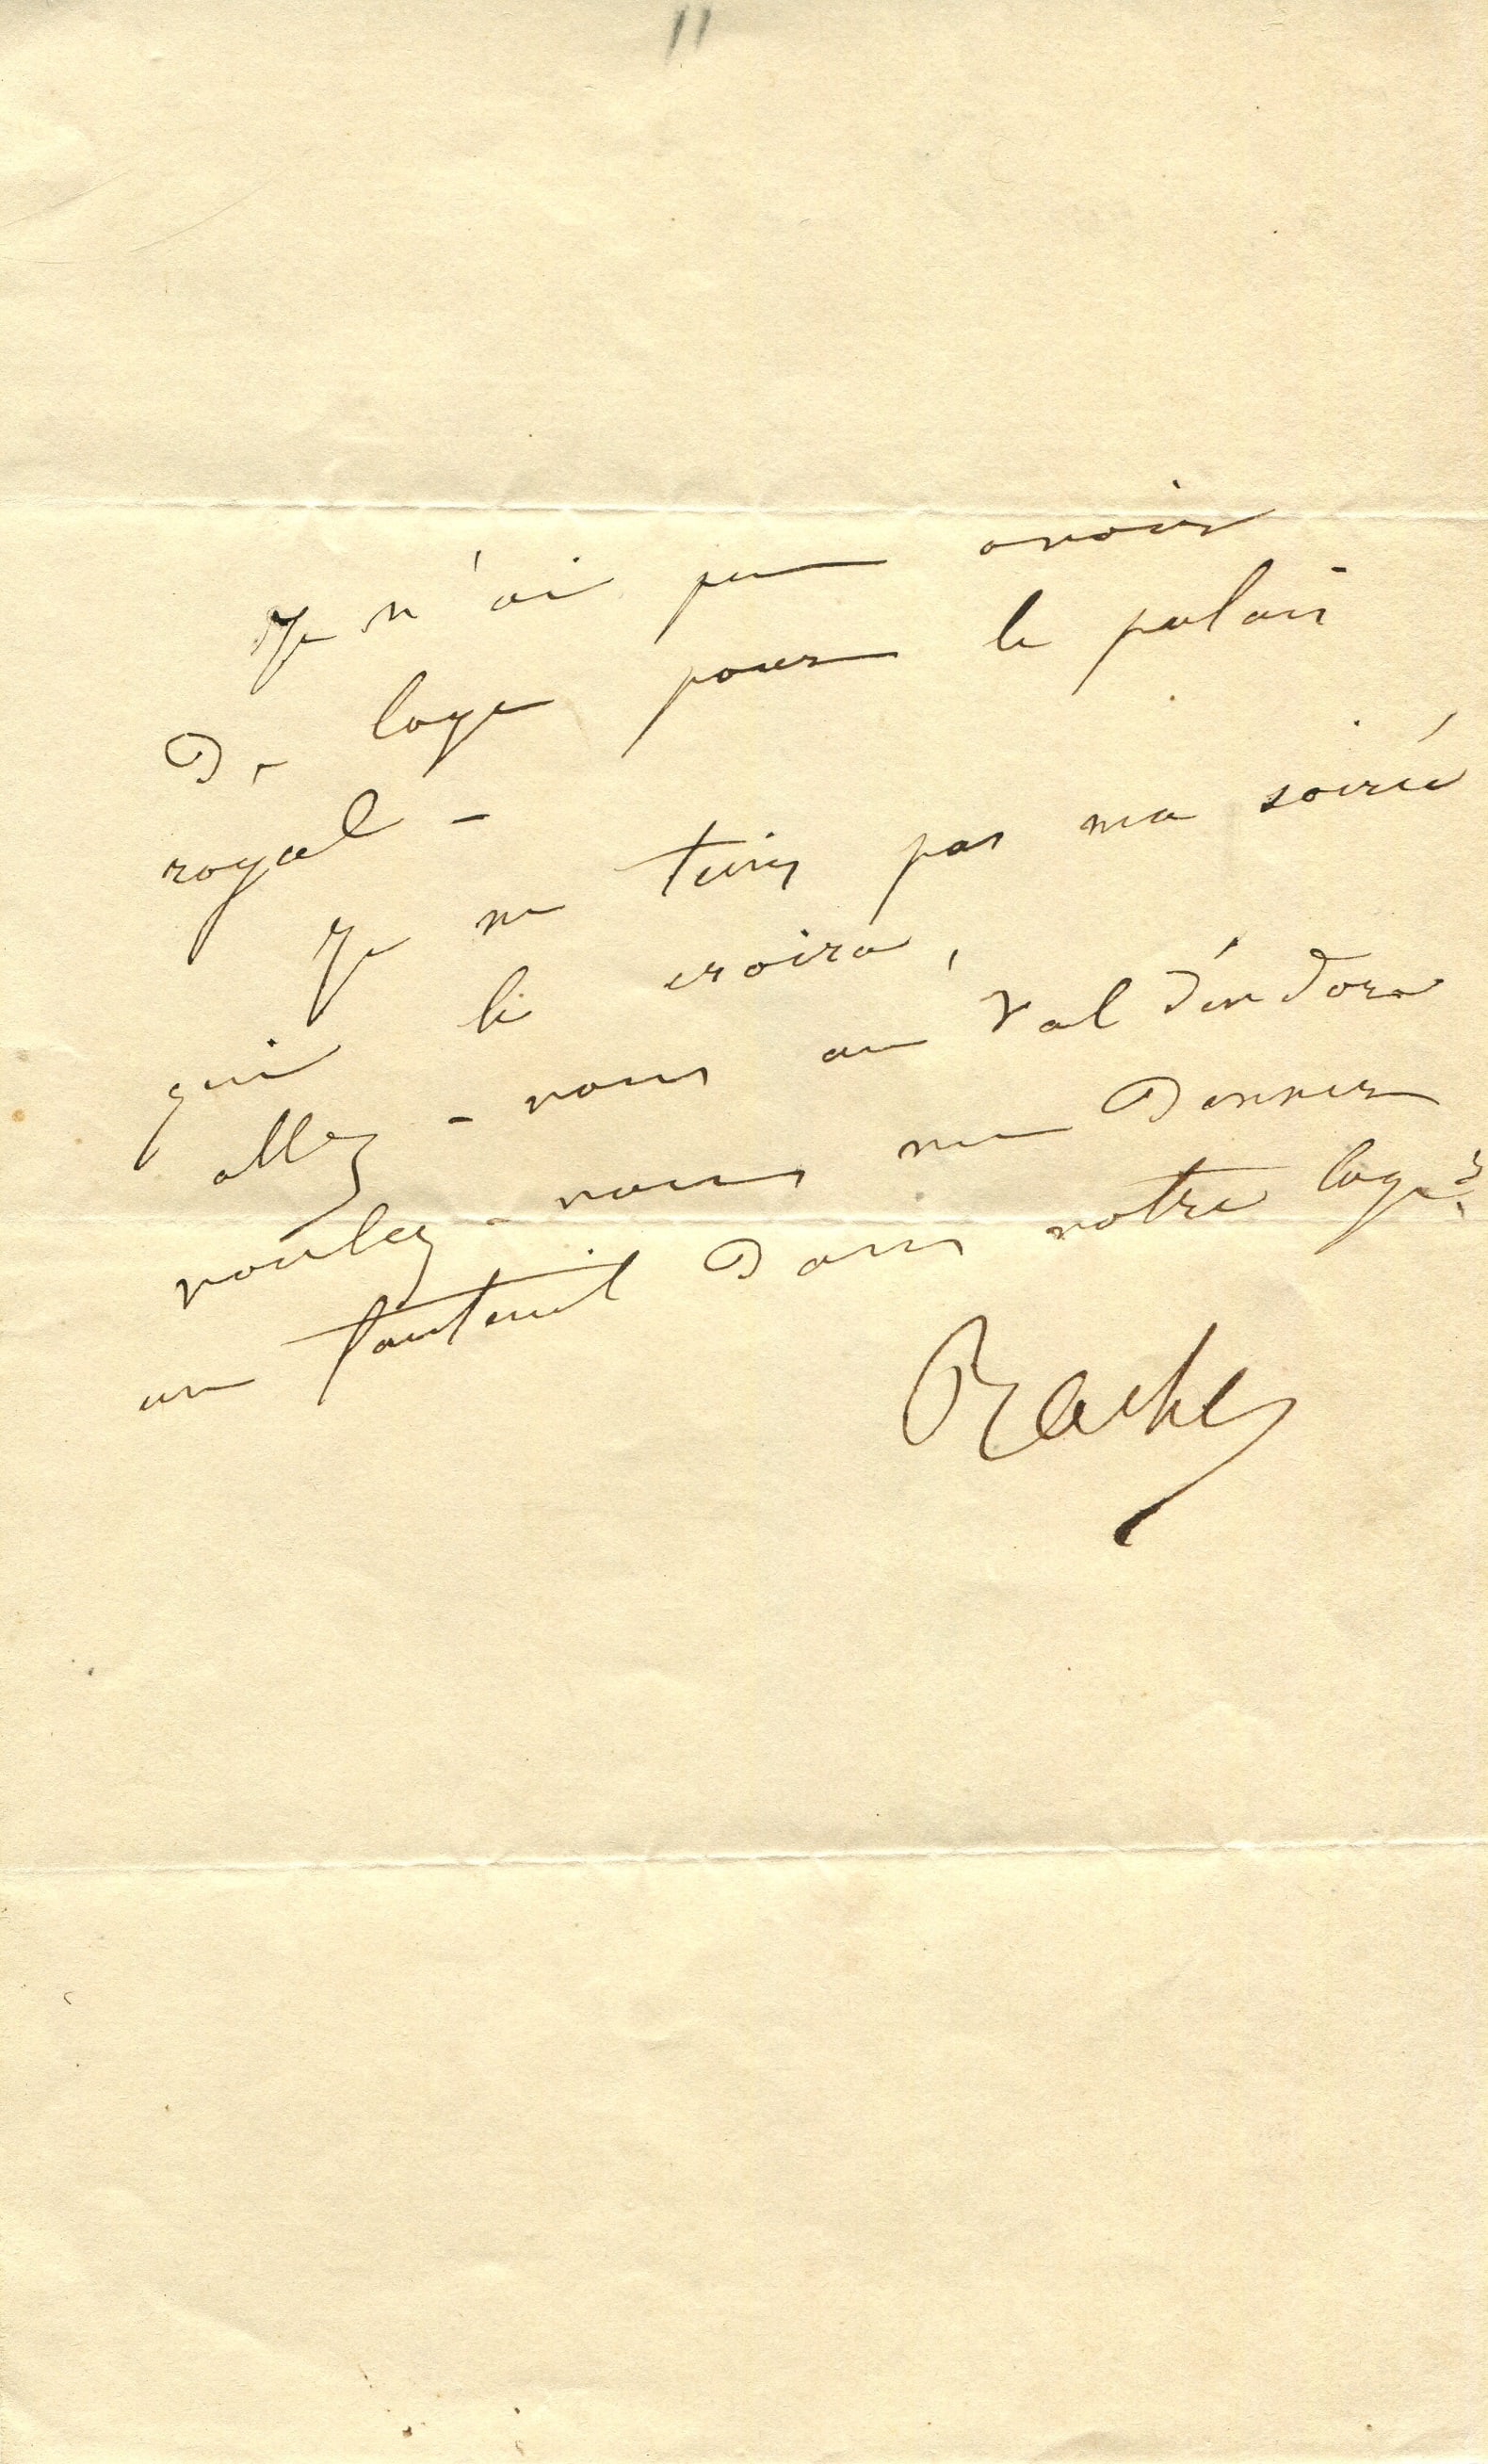 11
Je n'ai pu avoir
De loge pour le palais
royal -
Je ne pas ma soirée
qui le croira,
allez-vous au Val d'andore
voulez-vous me Donner
un fauteuil Dans votre loge?
Rachel